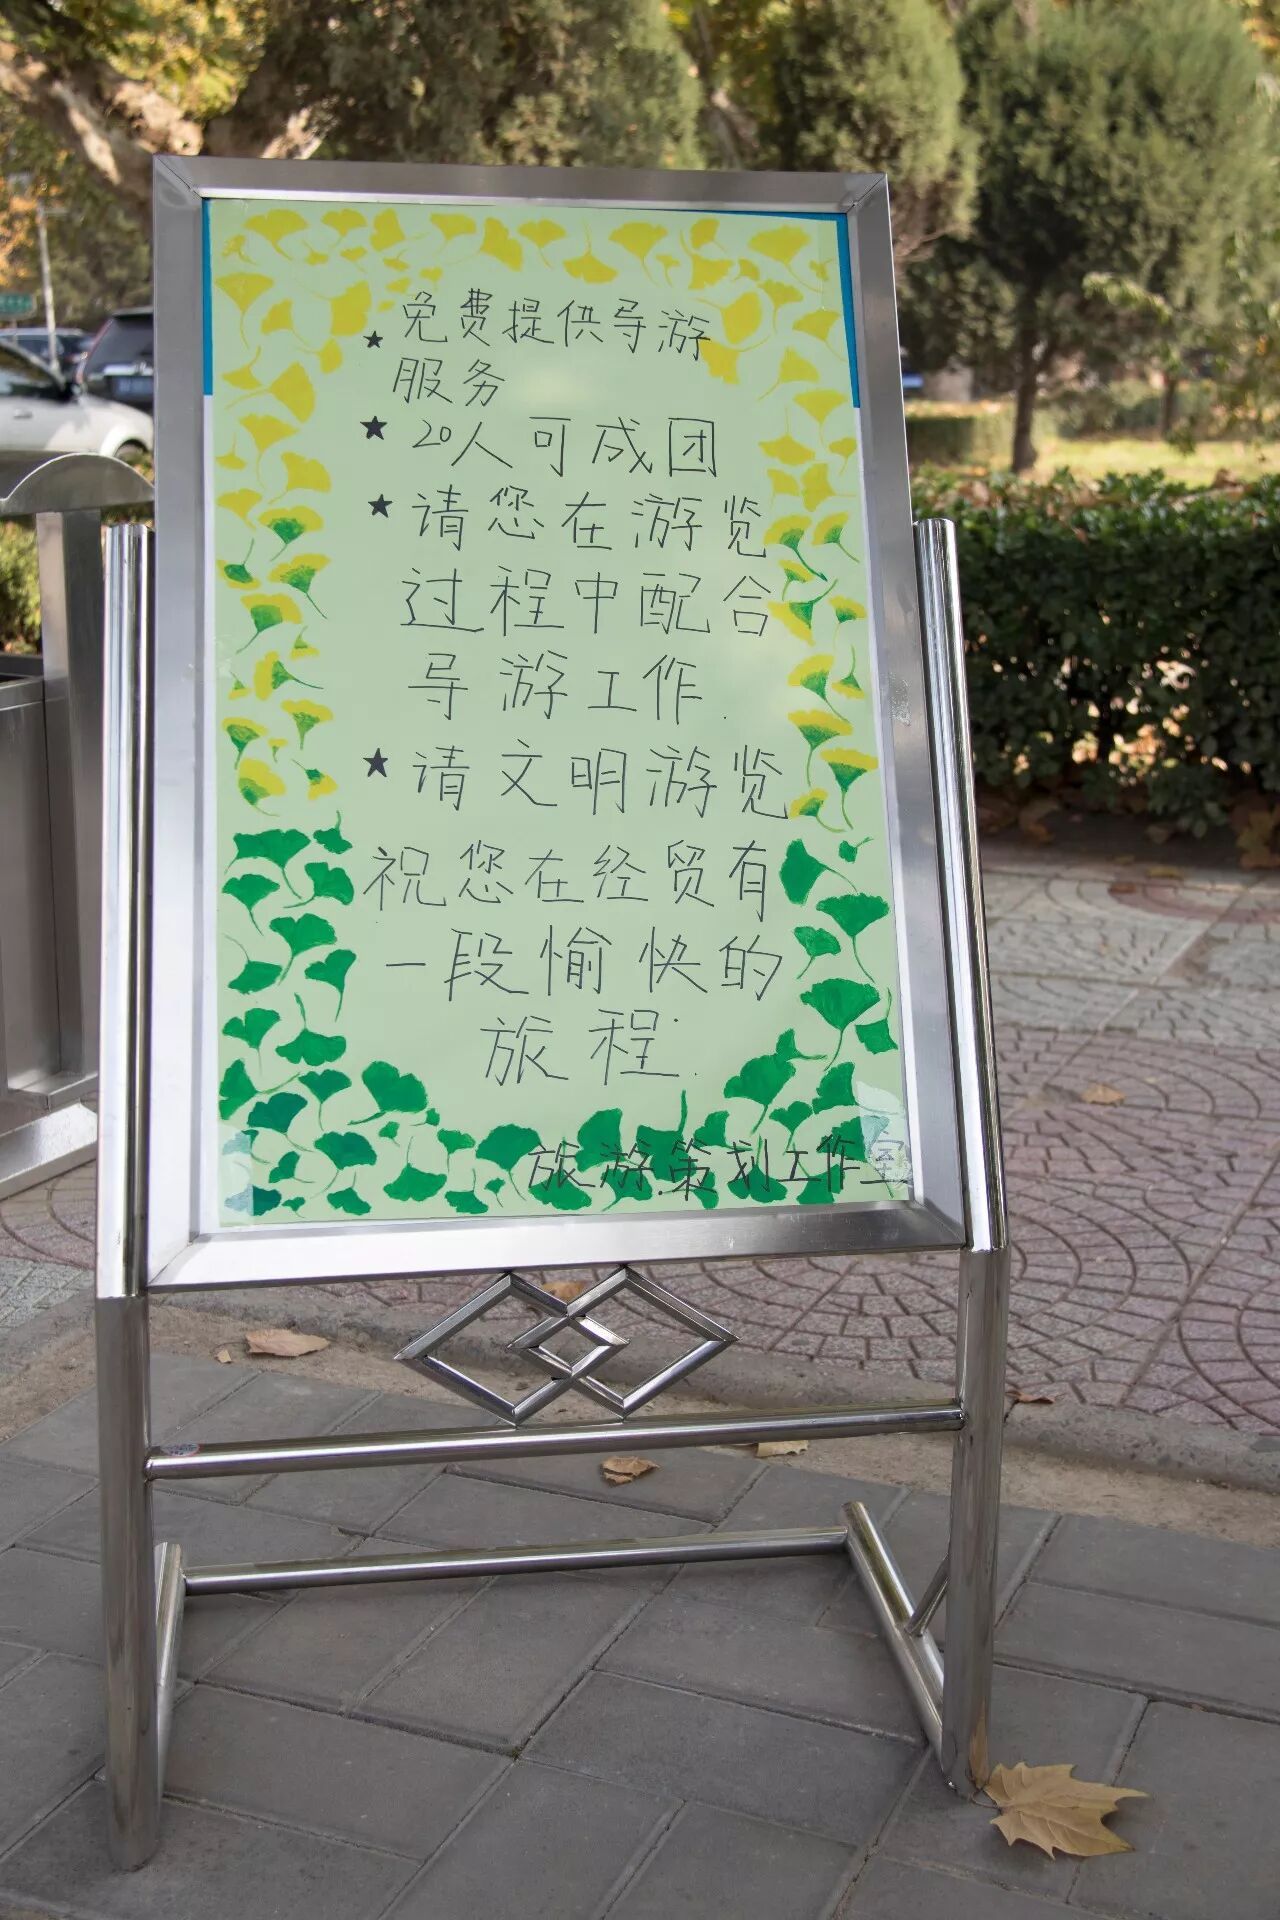 ★ 免费提供导游
服务
★ 20人可成团
★ 请您在游览
过程中配合
导游工作.
★ 请文明游览
祝您在经贸有
一段愉快的
旅程.
旅游策划工作室